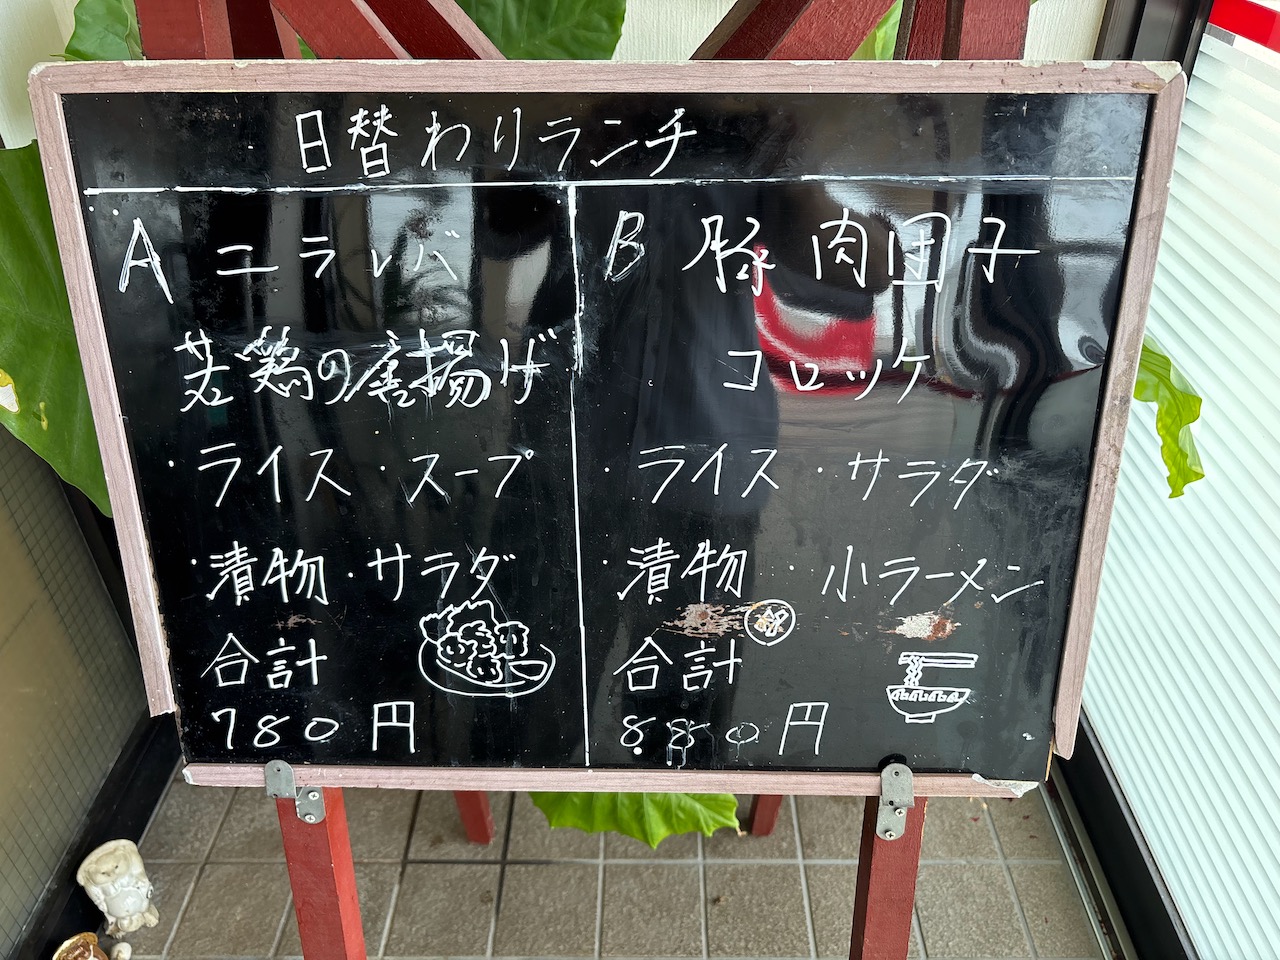 日替わりランチ
A ニラレバ
若鶏の唐揚げ
・ライス ・スープ
・漬物 ・サラダ
合計
780円
B 豚肉団子
コロッケ
・ライス ・サラダ
・漬物 ・小ラーメン
合計
880円